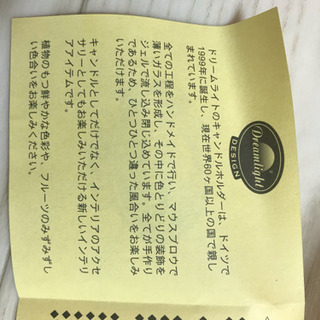 Dreamlight
DESIGN
ドリームライトのキャンドルホルダーは、ドイツで
1999年に誕生し、現在世界60ヶ国以上の国で親し
まれています。
全ての工程をハンドメイドで行い、マウスブロウで
薄いガラスを形成し、その中に色とりどりの装飾を
ジェルで流し込み閉じ込めています。全てが手作り
であるため、ひとつひとつ違った風合いをお楽しみ
いただけます。
キャンドルとしてだけでなく、インテリアのアクセ
サリーとしてもお楽しみいただける新しいインテリ
アアイテムです。
植物のもつ鮮やかな色彩や、フルーツのみずみずし
い色合いをお楽しみください。